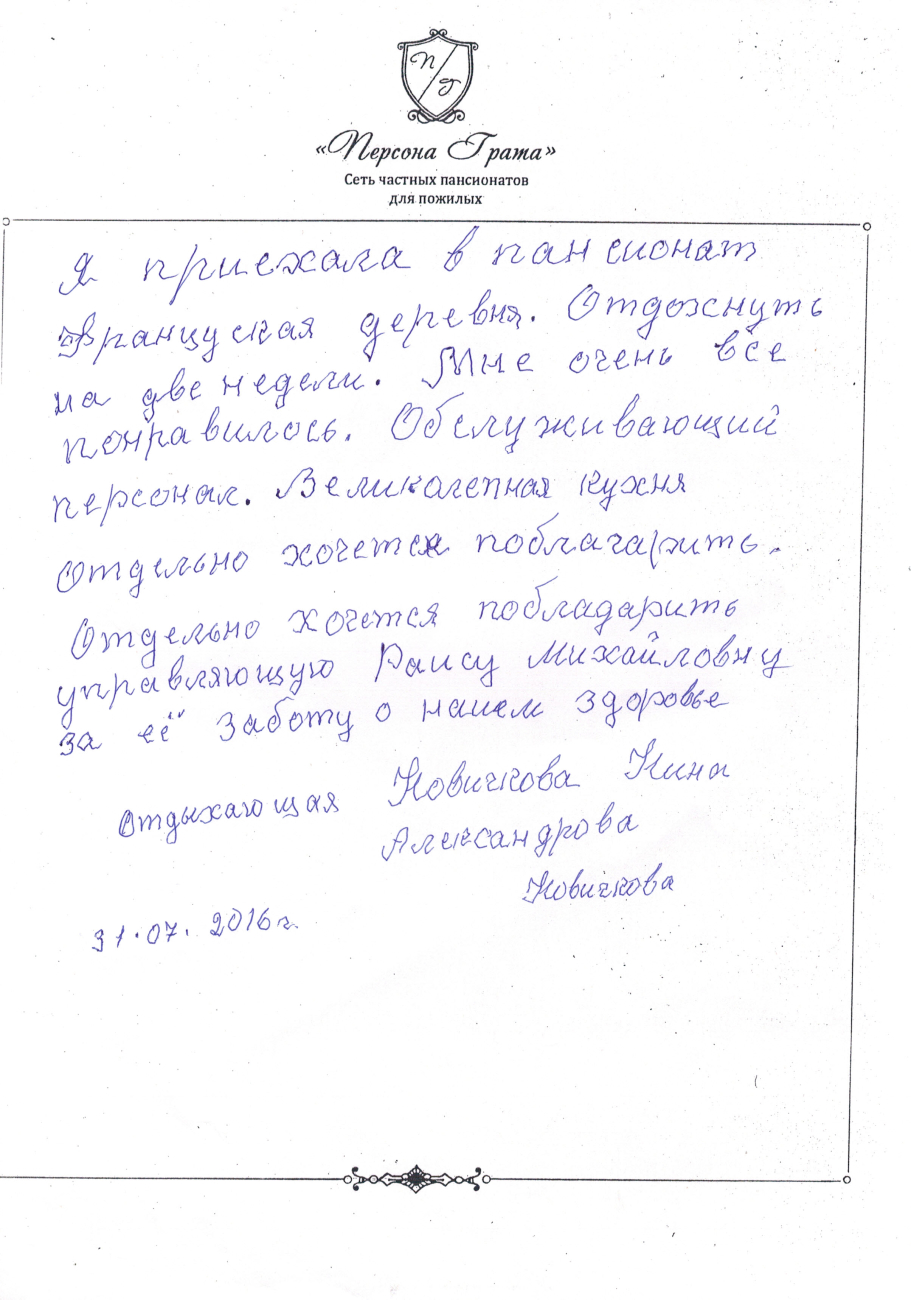 П Г
«Персона Грата»
Сеть частных пансионатов
для пожилых
Я приехала в пансионат
Француская деревня. Отдохнуть
на две недели. Мне очень все
понравилось. Обслуживающий
персонал. Великолепная кухня
Отдельно хочется поблагарить.
Отдельно хочется побладарить
управляющую Раису Михайловну
за её заботу о нашем здоровье
Отдыхающая Новичкова Нина
Александрова
Новичкова
31.07.2016г.